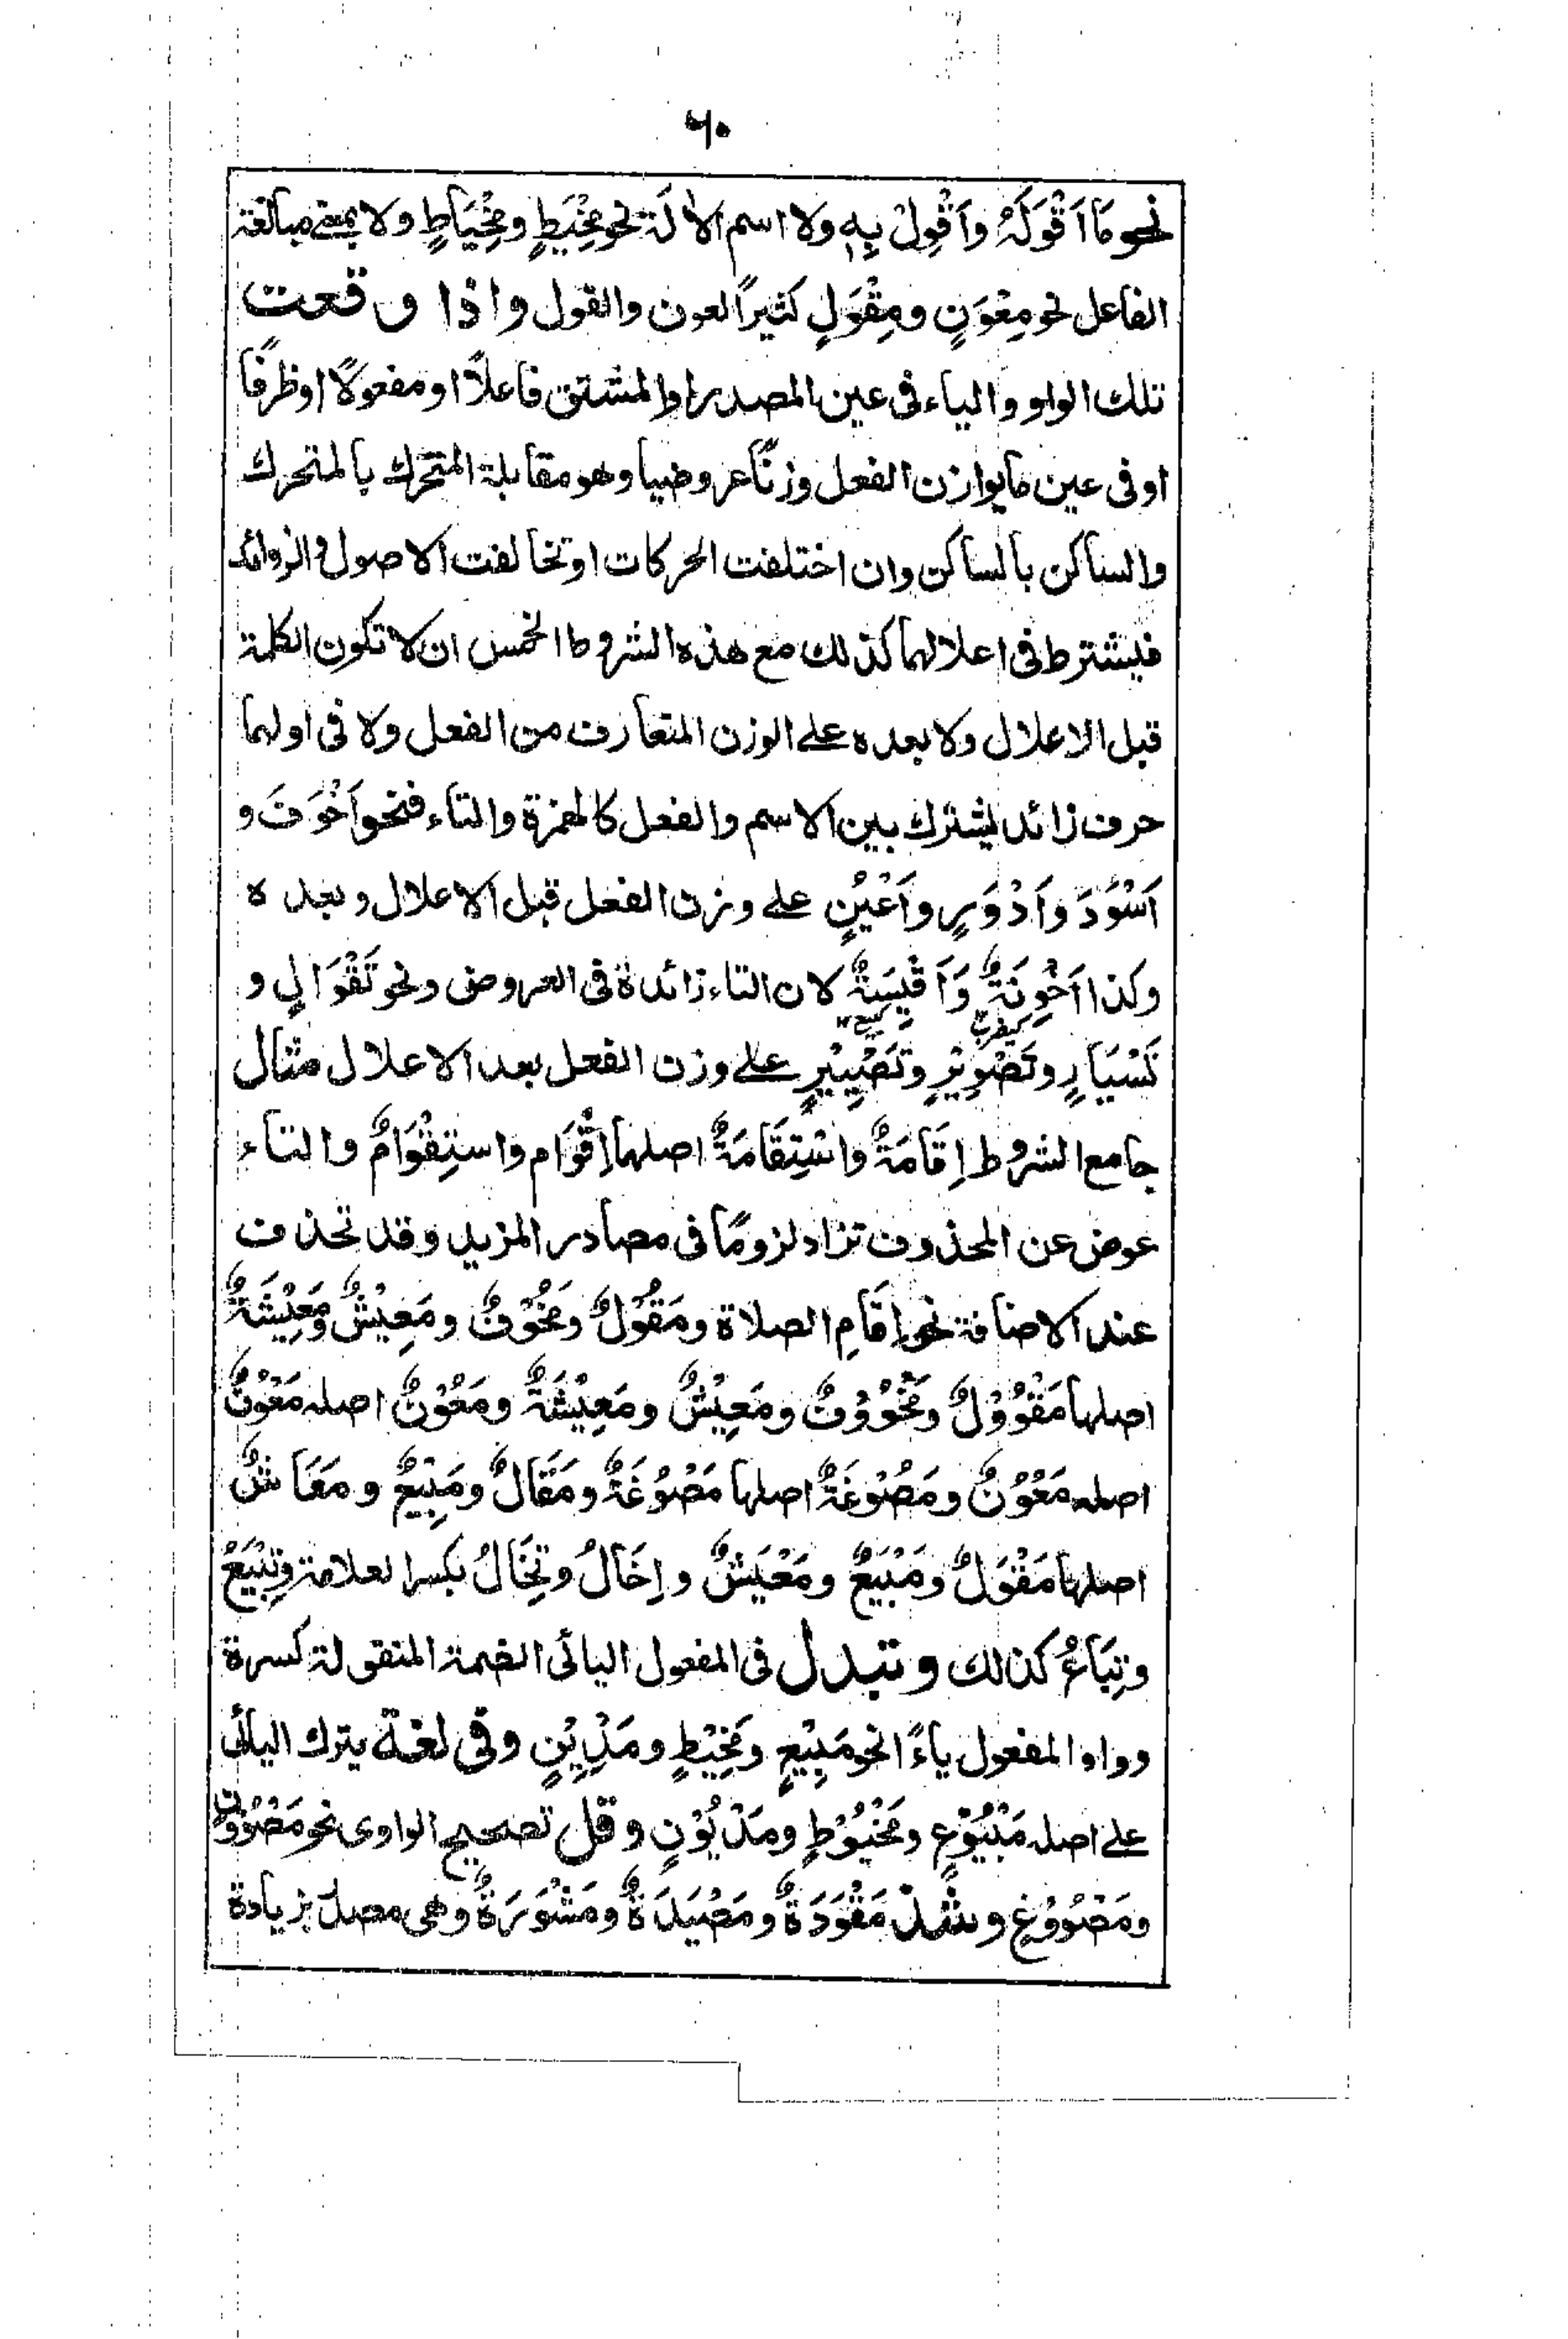 ٦٠
نحو مَا اَقْوَلَهُ وَاَقْوِلْ بِهٖ ولا اسم الاٰلة نحو مِخْيَطٍ ومِخْيَاطٍ ولا بمعنے مبالغة
الفاعل نحو مِعْوَنٍ ومِقْوَلٍ كثيرًا لعون والقول واذا وقعت
تلك الواو والياء فى عين المصدر او المشتق فاعلاً او مفعولاً او ظرفًا
او فى عين ما يوازن الفعل وزنًا عروضيا وهو مقابلة المتحرك بالمتحرك
والساكن بالساكن وان اختلفت الحركات او تخالفت الاصول والزوائد
فيشترط فى اعلالهما كذلك مع هذه الشروط الخمس ان لا تكون الكلمة
قبل الاعلال ولا بعده علے الوزن المتعارف من الفعل ولا فى اولهما
حرف زائد يشترك بين الاسم والفعل كالهمزة والتاء فنحو اَخْوَفَ و
اَسْوَدَ وَاَدْوَرٍ وَاَعْيُنٍ علے وزن الفعل قبل الاعلال وبعده
وكذا اَخْوِنَةٌ وَاَقْيِسَةٌ لان التاء زائدة فى العروض ونحو تَقْوَالٍ و
تَسْيَارٍ وتَصْوِيْرٍ وتَصْيِيْرٍ علے وزن الفعل بعد الاعلال مثال
جامع الشروط اِقَامَةٌ واسْتِقَامَةٌ اصلهما اِقْوَام واستِقْوَامٌ والتاء
عوض عن المحذوف تزاد لزومًا فى مصادر المزيد وقد تحذف
عند الاضافة نحو اِقَامِ الصلاة ومَقُوْلٌ ومَخُوْفٌ ومَعِيْشٌ ومَعِيْشَةٌ
اصلها مَقْوُوْلٌ ومَخْوُوْفٌ ومَعْيِشٌ ومَعْيِشَةٌ ومَعُوْنٌ اصله مَعْوُنٌ
اصله مَعْوُنٌ ومَصُوْغَةٌ اصلها مَصْوُغَةٌ ومَقَالٌ ومَبِيْعٌ ومَعَاشٌ
اصلها مَقْوَلٌ ومَبْيَعٌ ومَعْيَشٌ و اِخَالُ وتِخَالُ بكسر العلامة وتِبْيَعُ
وتِبَاعُ كذلك وتبدل فى المفعول اليائى الضمة المنقولة كسرة
وواو المفعول ياءً نحو مَبِيْعٍ ومَخِيْطٍ ومَدِيْنٍ وفى لغة يترك اليائى
علے اصله مَبْيُوْعٍ ومَخْيُوْطٍ ومَدْيُوْنٍ وقل تصحيح الواوى نحو مَصْوُوْنٍ
ومَصْوُوْغٍ وشذ مَقْوَدَةٌ ومَصْيَدَةٌ ومَشْوَرَةٌ وهى مصدر بزيادة